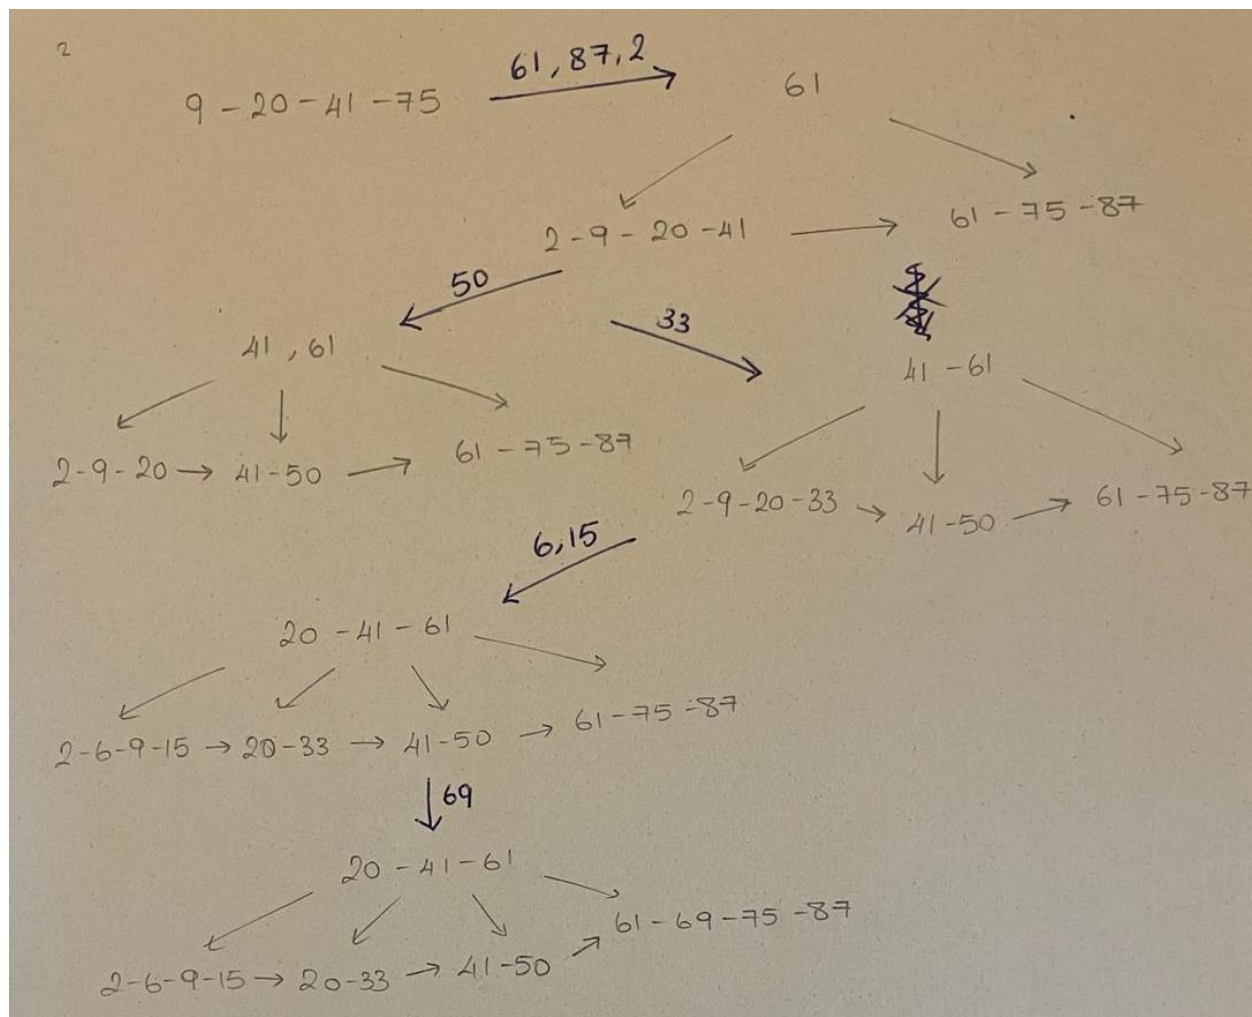 2
61, 87, 2
9 - 20 - 41 - 75
61
2 - 9 - 20 - 41 → 61 - 75 - 87
50
33
41 , 61
41 - 61
2 - 9 - 20 → 41 - 50 → 61 - 75 - 87
2 - 9 - 20 - 33 → 41 - 50 → 61 - 75 - 87
6, 15
20 - 41 - 61
2 - 6 - 9 - 15 → 20 - 33 → 41 - 50 → 61 - 75 - 87
69
20 - 41 - 61
2 - 6 - 9 - 15 → 20 - 33 → 41 - 50 → 61 - 69 - 75 - 87